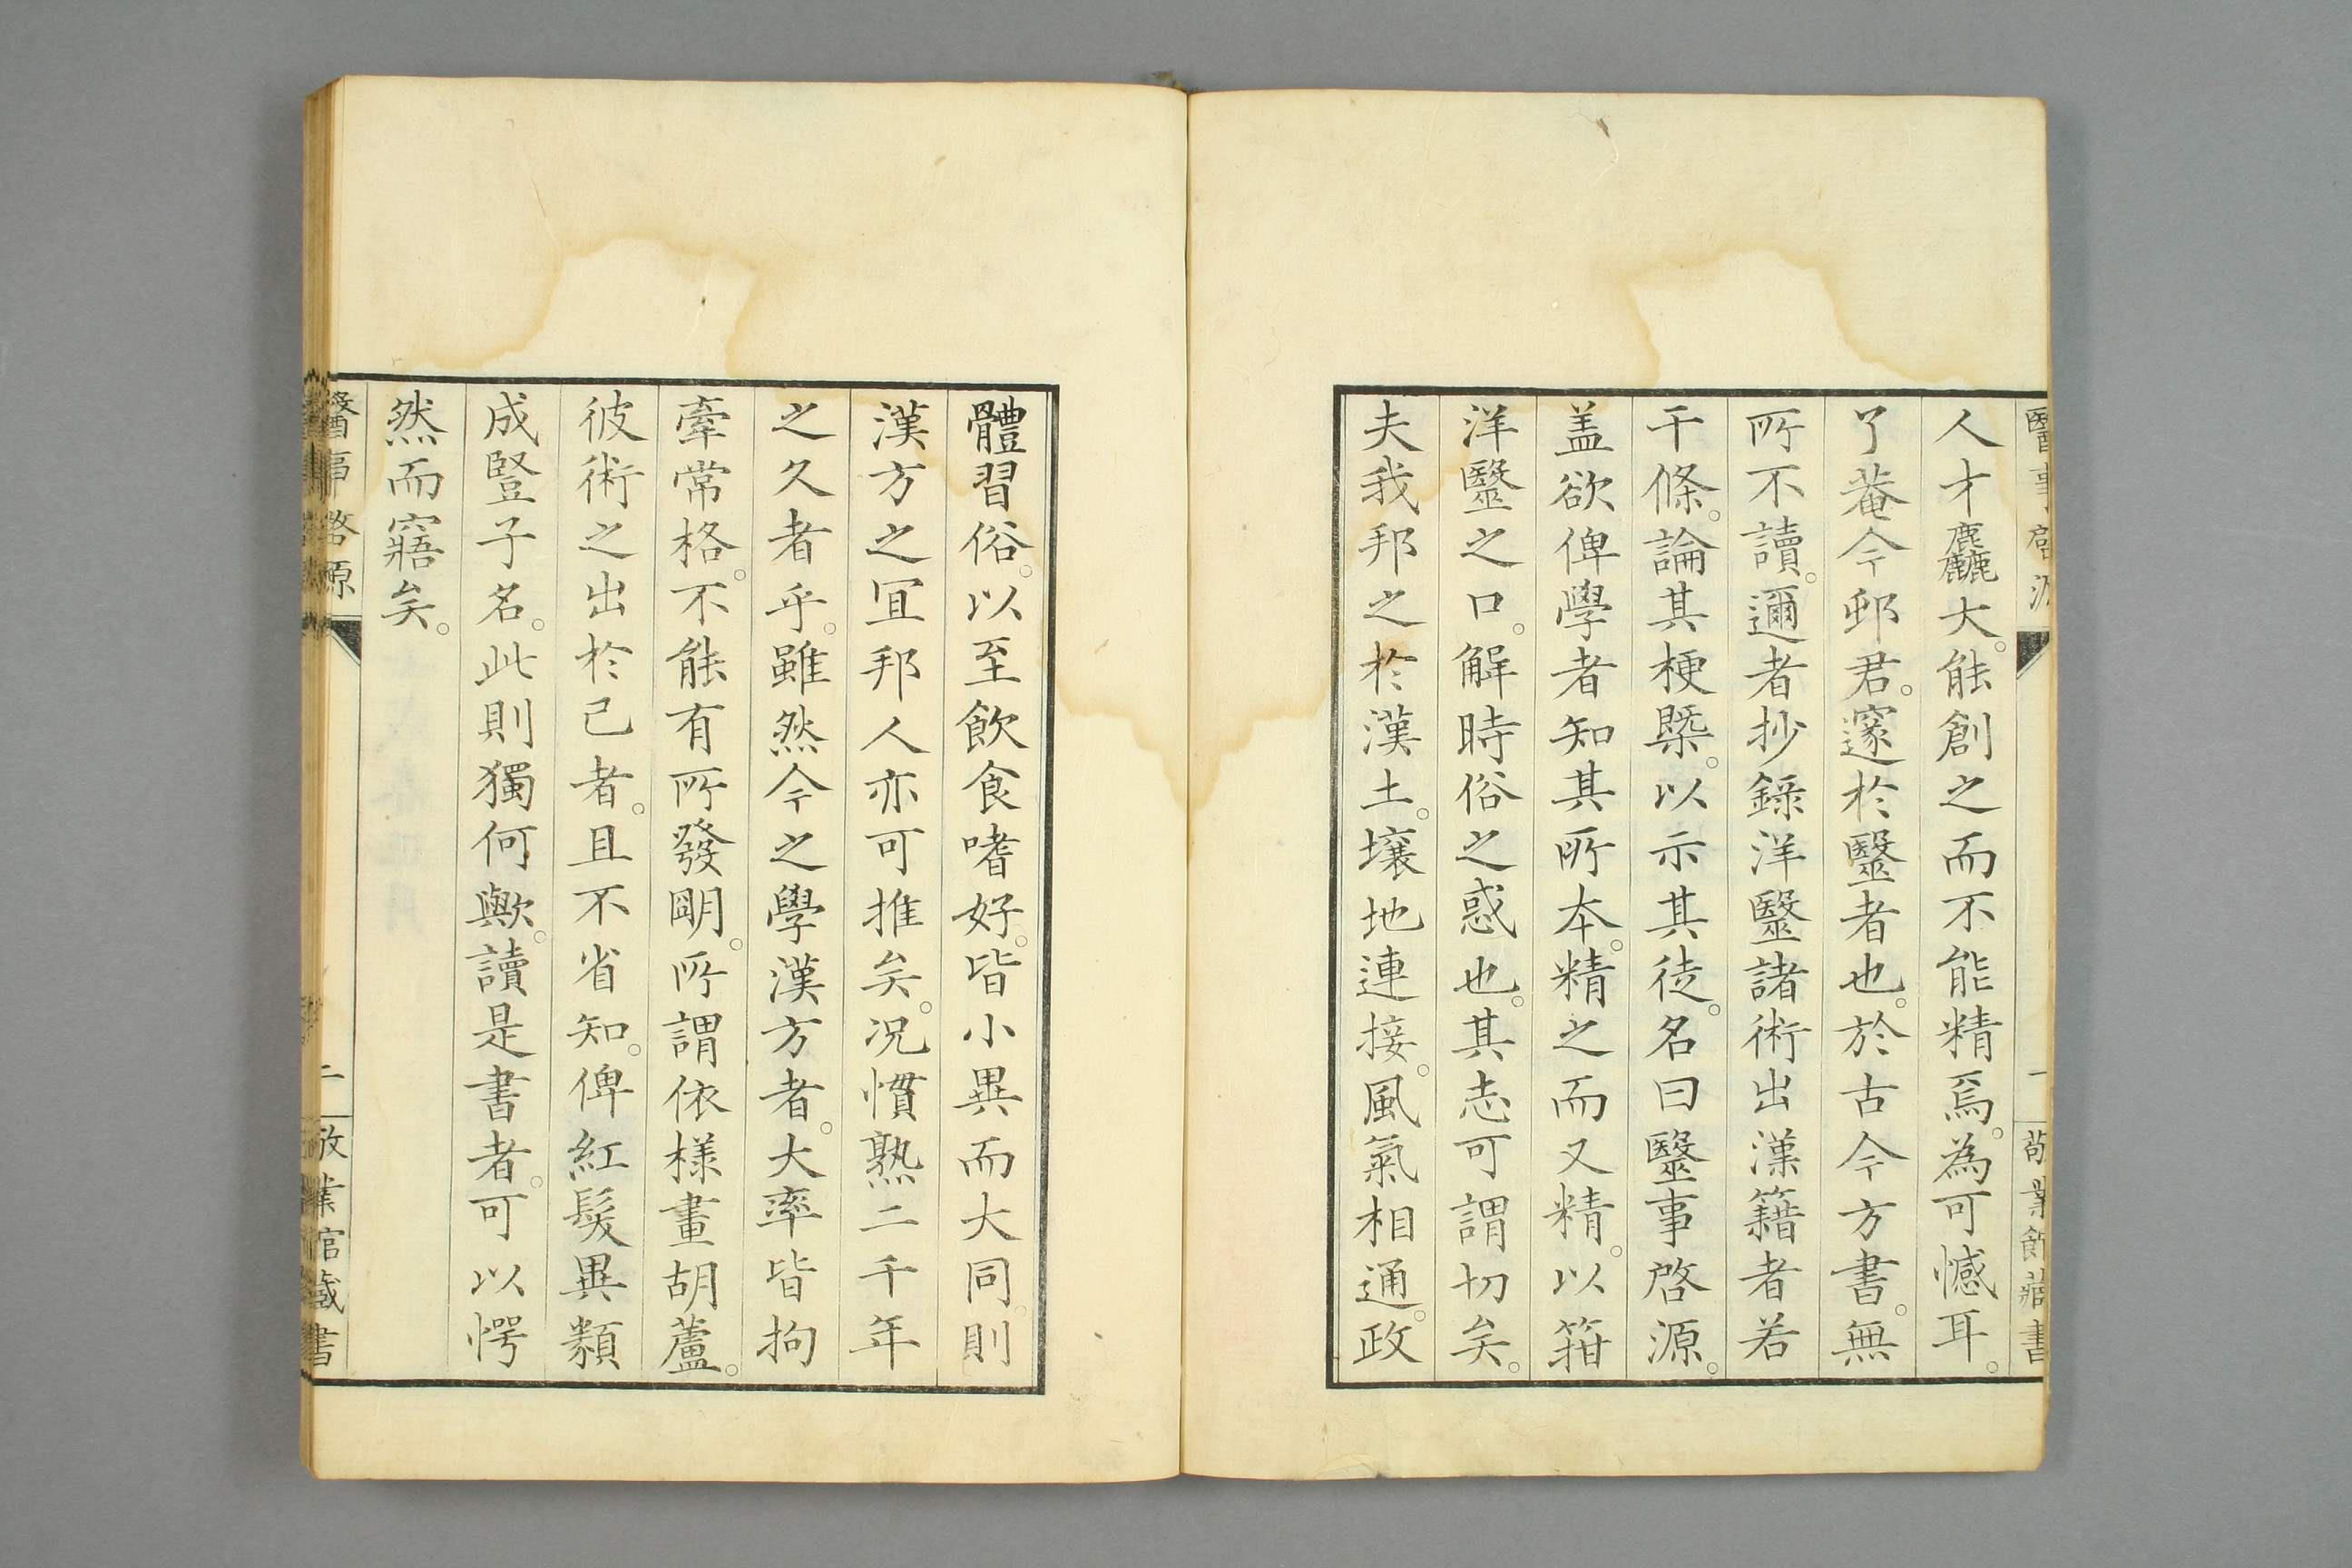 醫事啓源
一
敬業館藏書
人才麤大。能創之而不能精焉。為可憾耳。
了菴今邨君。邃於醫者也。於古今方書。無
所不讀。邇者抄錄洋醫諸術出漢籍者若
干條。論其梗槩。以示其徒。名曰醫事啓源。
盖欲俾學者知其所本。精之而又精。以箝
洋醫之口。解時俗之惑也。其志可謂切矣。
夫我邦之於漢土。壤地連接。風氣相通。政
體習俗。以至飲食嗜好。皆小異而大同。則
漢方之冝邦人亦可推矣。况慣熟二千年
之久者乎。雖然今之學漢方者。大率皆拘
牽常格。不能有所發明。所謂依樣畫胡蘆。
彼術之出於己者。且不省知。俾紅髮異類
成豎子名。此則獨何歟。讀是書者。可以愕
然而寤矣。
醫事啓源
二
敬業館藏書